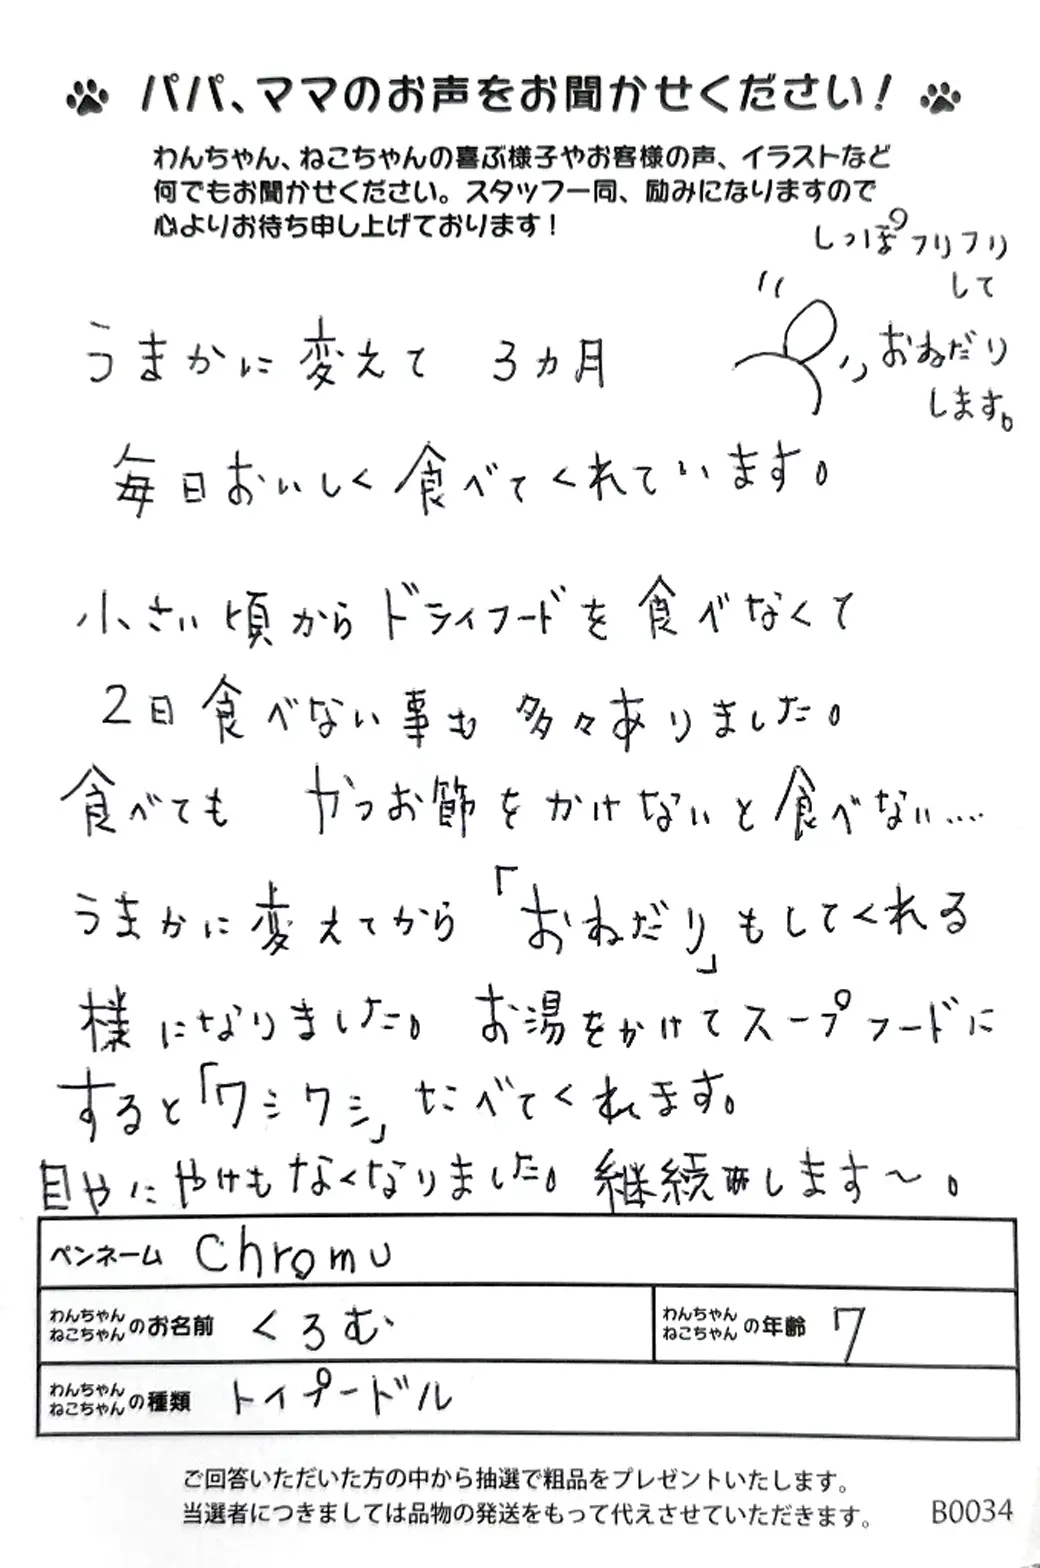 パパ、ママのお声をお聞かせください！
わんちゃん、ねこちゃんの喜ぶ様子やお客様の声、イラストなど
何でもお聞かせください。スタッフ一同、励みになりますので
心よりお待ち申し上げております！
しっぽフリフリ
して
おねだり
します。
うまかに変えて 3カ月
毎日おいしく食べてくれています。
小さい頃からドライフードを食べなくて
2日食べない事も多々ありました。
食べても かつお節をかけないと食べない…
うまかに変えてから「おねだり」もしてくれる
様になりました。お湯をかけてスープフードに
すると「ワシワシ」たべてくれます。
目やにやけもなくなりました。継続します〜。
ペンネーム Chromu
わんちゃん
ねこちゃん のお名前 くろむ
わんちゃん
ねこちゃん の年齢 7
わんちゃん
ねこちゃん の種類 トイプードル
ご回答いただいた方の中から抽選で粗品をプレゼントいたします。
当選者につきましては品物の発送をもって代えさせていただきます。
B0034